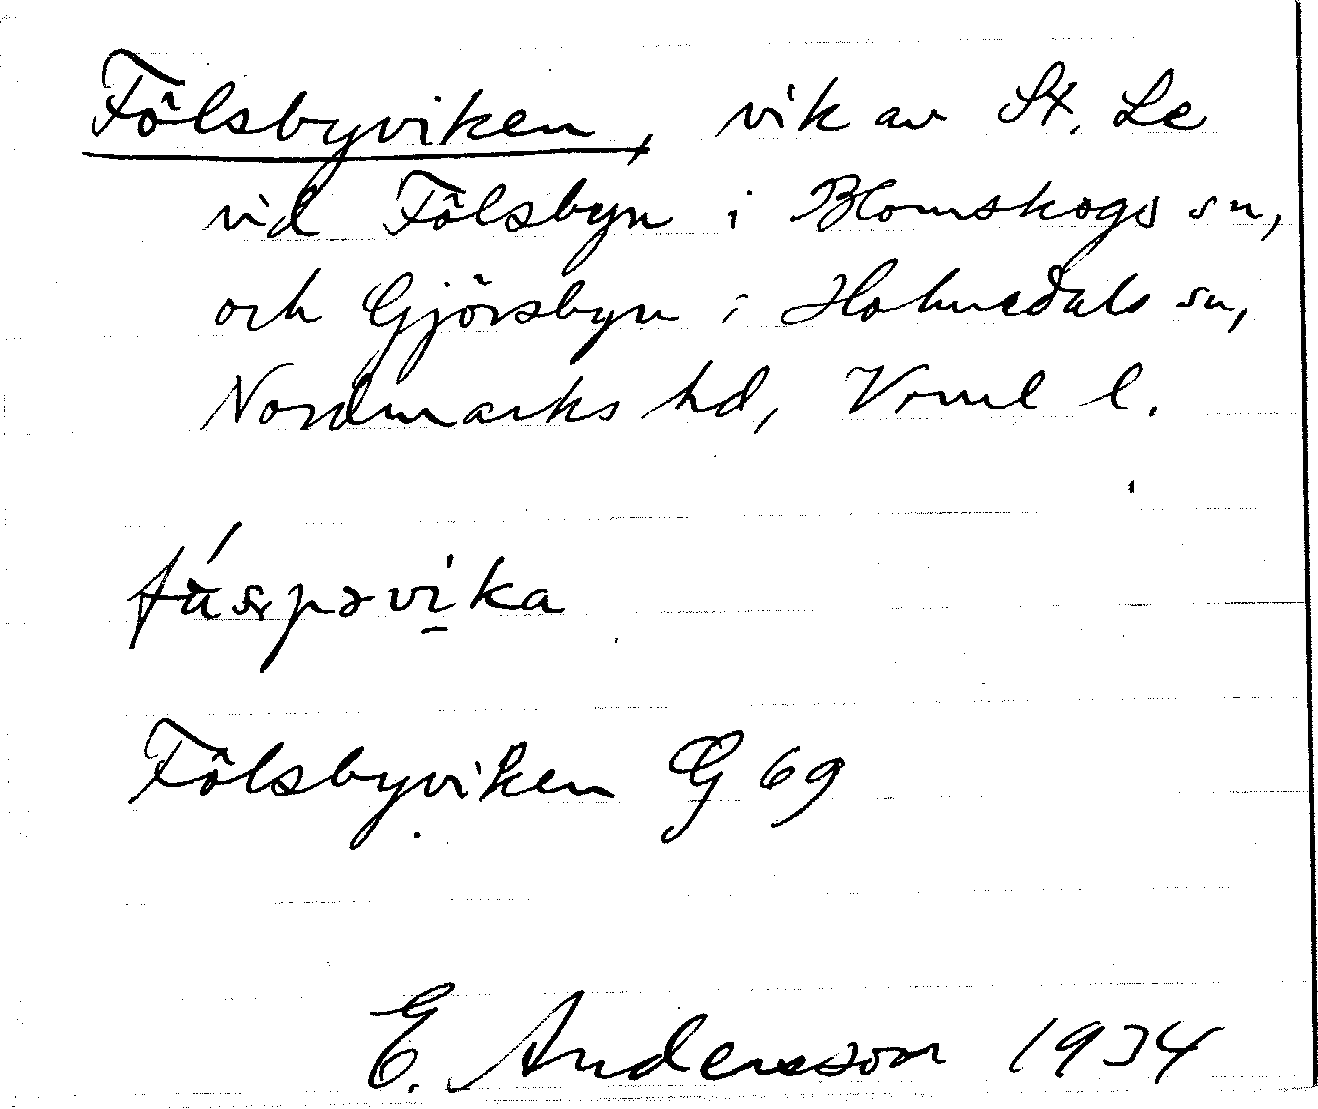 Fölsbyviken, vik av St. Le
vid Fölsbyn i Blomskogs sn,
och Gjörsbyn i Holmedals sn,
Nordmarks hd, Vrml l.
Fölsbyviken G 69
E. Andersson 1934